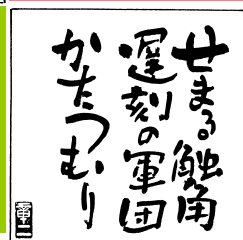 せまる触角
遅刻の軍団
かたつむり